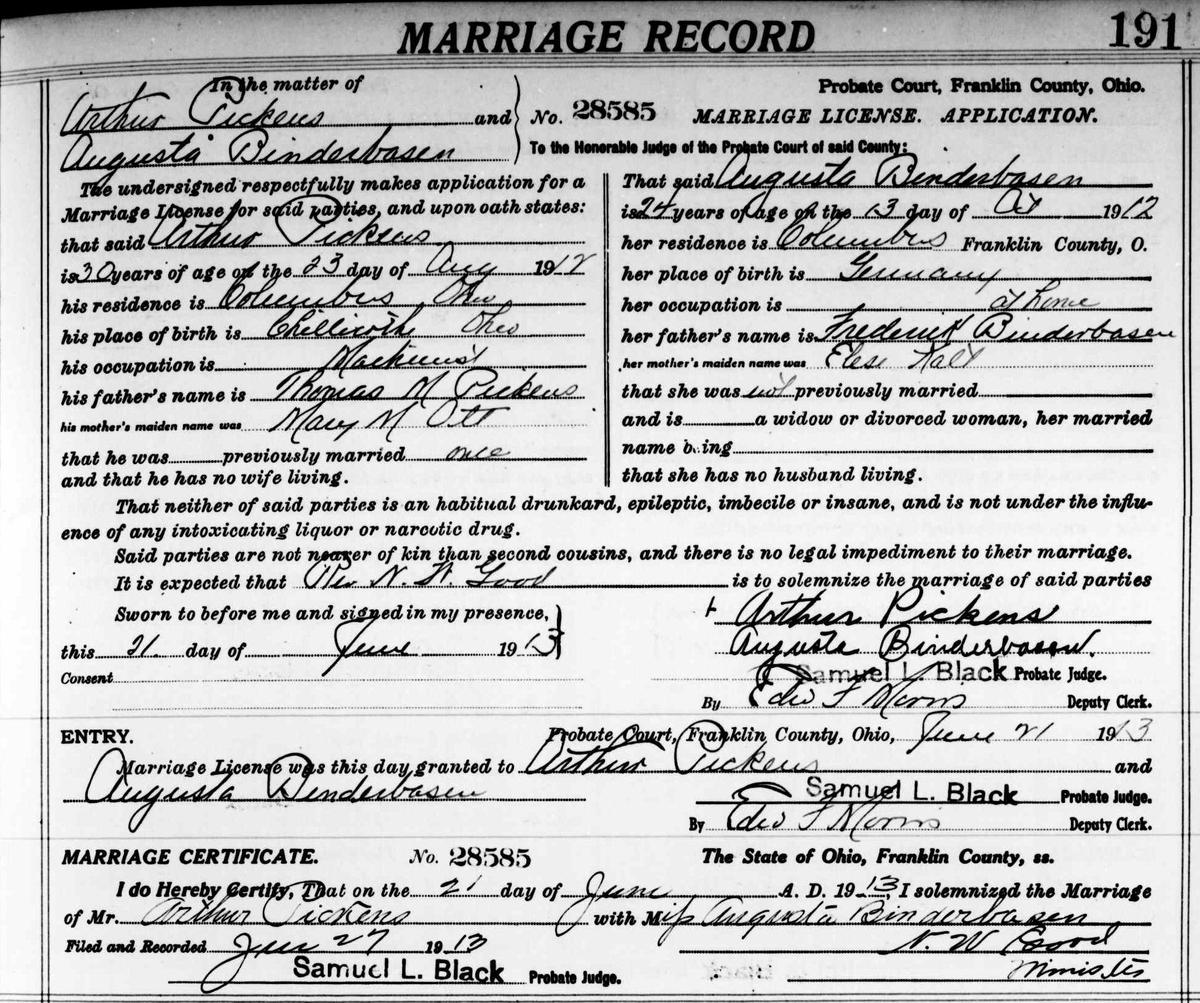 MARRIAGE RECORD 191
In the matter of
Arthur Pickens and
Augusta Binderbasen
Probate Court, Franklin County, Ohio.
No. 28585 MARRIAGE LICENSE. APPLICATION.
To the Honorable Judge of the Probate Court of said County:
The undersigned respectfully makes application for a
Marriage License for said parties, and upon oath states:
that said Arthur Pickens
is 30 years of age on the 23 day of Aug 1912
his residence is Columbus Ohio
his place of birth is Chillicothe Ohio
his occupation is Machinist
his father's name is Thomas M Pickens
his mother's maiden name was Mary M Ott
that he was previously married once
and that he has no wife living.
That said Augusta Binderbasen
is 24 years of age on the 13 day of Oct 1912
her residence is Columbus Franklin County, O.
her place of birth is Germany
her occupation is at home
her father's name is Frederick Binderbasen
her mother's maiden name was Elese
that she was not previously married
and is a widow or divorced woman, her married
name being
that she has no husband living.
That neither of said parties is an habitual drunkard, epileptic, imbecile or insane, and is not under the influ-
ence of any intoxicating liquor or narcotic drug.
Said parties are not nearer of kin than second cousins, and there is no legal impediment to their marriage.
It is expected that Rev N. W. Good is to solemnize the marriage of said parties
Sworn to before me and signed in my presence,
this 21. day of June 1913
Consent
Arthur Pickens
Augusta Binderbasen.
Samuel L. Black Probate Judge.
By Edw F Morris Deputy Clerk.
ENTRY. Probate Court, Franklin County, Ohio, June 21 1913
Marriage License was this day granted to Arthur Pickens and
Augusta Binderbasen
Samuel L. Black Probate Judge.
By Edw F Morris Deputy Clerk.
MARRIAGE CERTIFICATE. No. 28585 The State of Ohio, Franklin County, ss.
I do Hereby Certify, That on the 21 day of June A. D. 1913 I solemnized the Marriage
of Mr. Arthur Pickens with Miss Augusta Binderbasen
Filed and Recorded Jun 27 1913 N. W. Good
Samuel L. Black Probate Judge. Minister